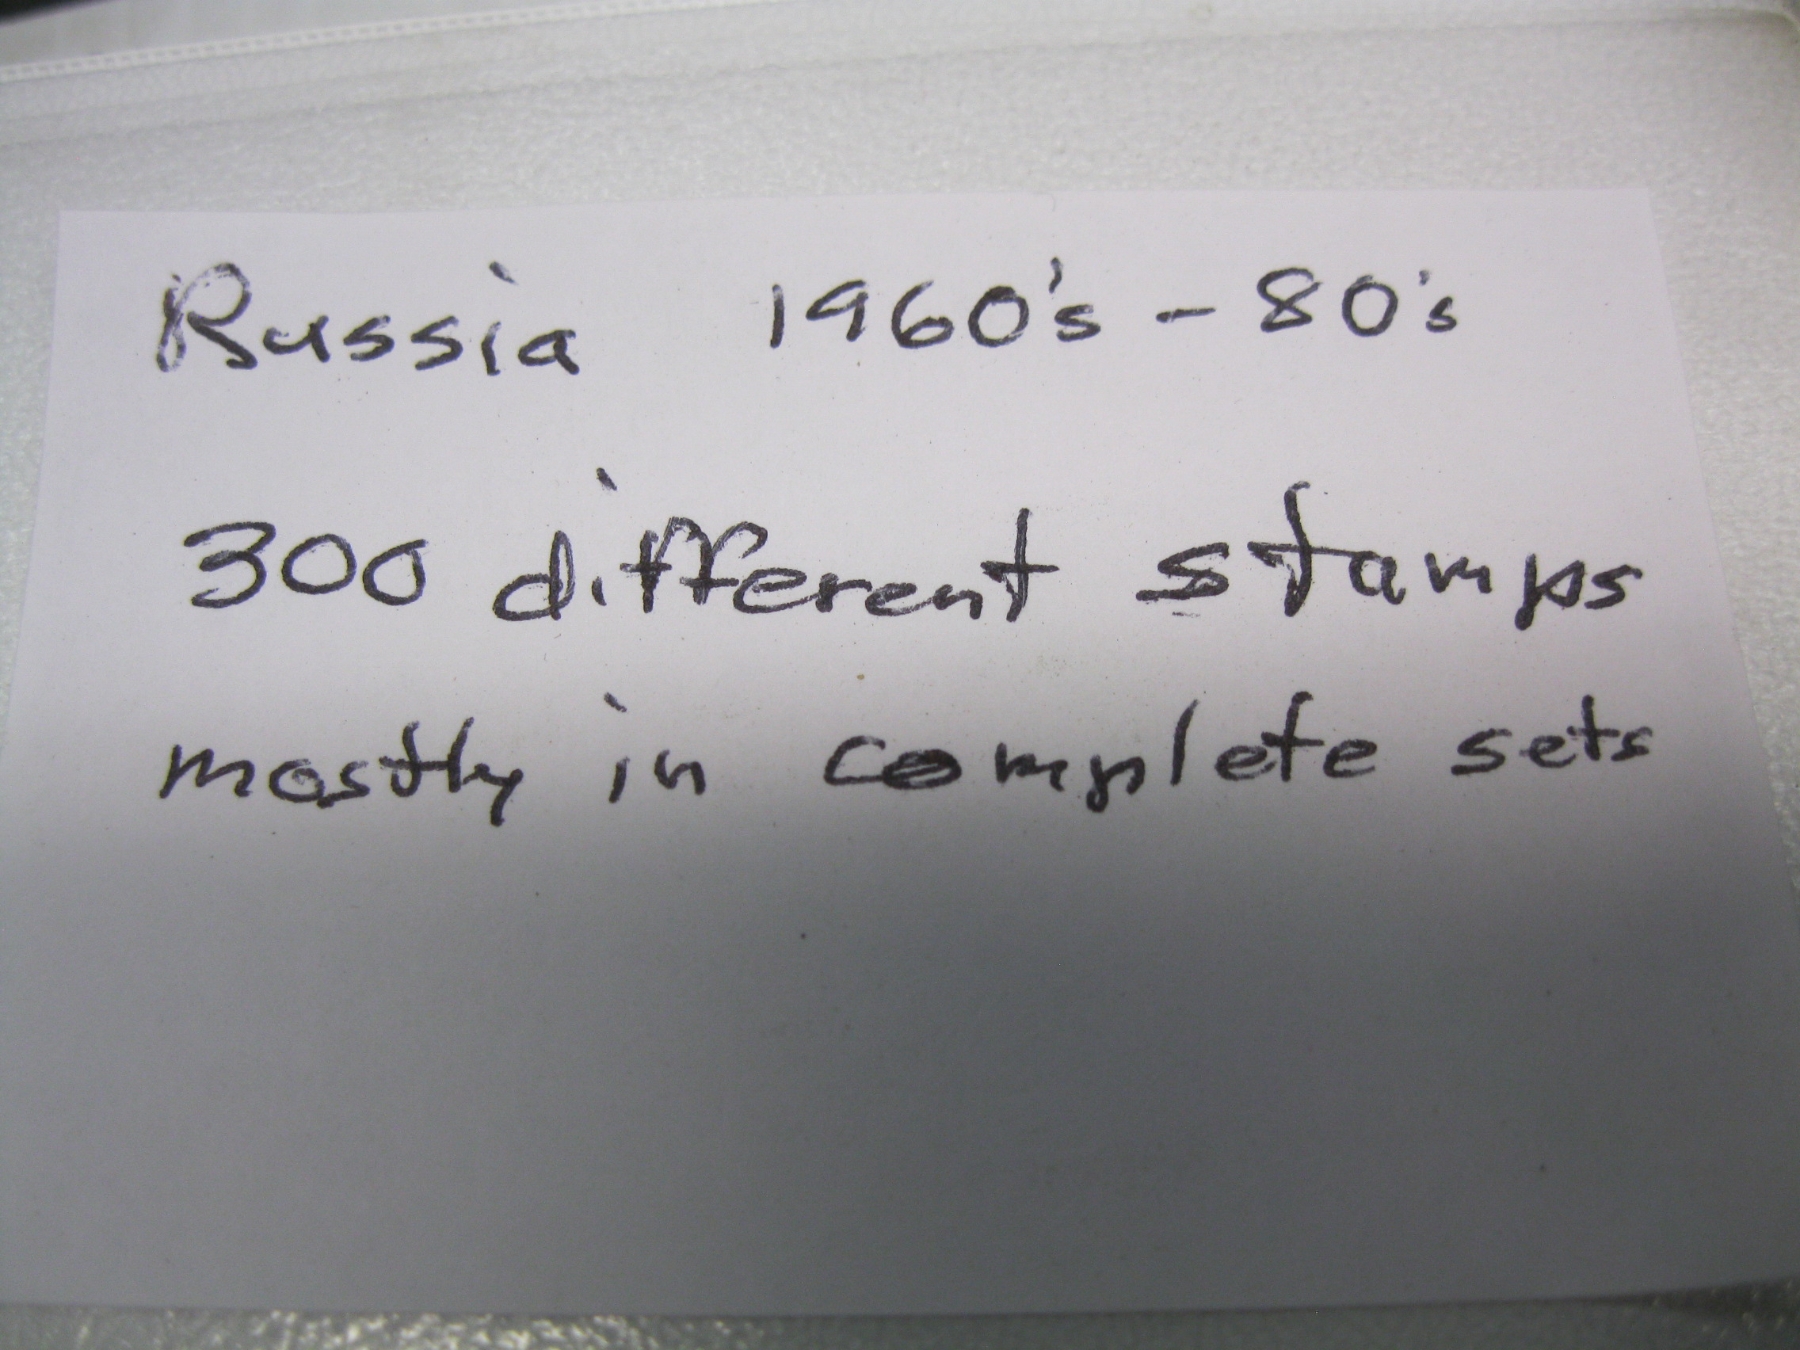 Russia 1960's - 80's
300 different stamps
mostly in complete sets